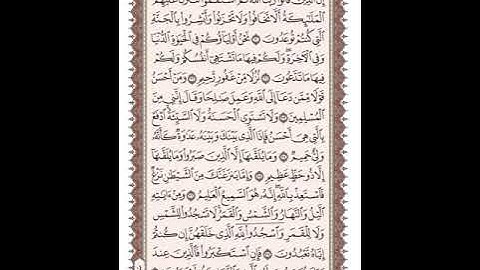 إِنَّ ٱلَّذِينَ قَالُوا۟ رَبُّنَا ٱللَّهُ ثُمَّ ٱسْتَقَٰمُوا۟ تَتَنَزَّلُ عَلَيْهِمُ
ٱلْمَلَٰٓئِكَةُ أَلَّا تَخَافُوا۟ وَلَا تَحْزَنُوا۟ وَأَبْشِرُوا۟ بِٱلْجَنَّةِ
ٱلَّتِى كُنتُمْ تُوعَدُونَ ۝ نَحْنُ أَوْلِيَآؤُكُمْ فِى ٱلْحَيَوٰةِ ٱلدُّنْيَا
وَفِى ٱلْءَاخِرَةِ ۖ وَلَكُمْ فِيهَا مَا تَشْتَهِىٓ أَنفُسُكُمْ وَلَكُمْ
فِيهَا مَا تَدَّعُونَ ۝ نُزُلًا مِّنْ غَفُورٍ رَّحِيمٍ ۝ وَمَنْ أَحْسَنُ
قَوْلًا مِّمَّن دَعَآ إِلَى ٱللَّهِ وَعَمِلَ صَٰلِحًا وَقَالَ إِنَّنِى مِنَ
ٱلْمُسْلِمِينَ ۝ وَلَا تَسْتَوِى ٱلْحَسَنَةُ وَلَا ٱلسَّيِّئَةُ ۚ ٱدْفَعْ
بِٱلَّتِى هِىَ أَحْسَنُ فَإِذَا ٱلَّذِى بَيْنَكَ وَبَيْنَهُۥ عَدَٰوَةٌ كَأَنَّهُۥ
وَلِىٌّ حَمِيمٌ ۝ وَمَا يُلَقَّىٰهَآ إِلَّا ٱلَّذِينَ صَبَرُوا۟ وَمَا يُلَقَّىٰهَآ
إِلَّا ذُو حَظٍّ عَظِيمٍ ۝ وَإِمَّا يَنزَغَنَّكَ مِنَ ٱلشَّيْطَٰنِ نَزْغٌ
فَٱسْتَعِذْ بِٱللَّهِ ۖ إِنَّهُۥ هُوَ ٱلسَّمِيعُ ٱلْعَلِيمُ ۝ وَمِنْ ءَايَٰتِهِ
ٱلَّيْلُ وَٱلنَّهَارُ وَٱلشَّمْسُ وَٱلْقَمَرُ ۚ لَا تَسْجُدُوا۟ لِلشَّمْسِ
وَلَا لِلْقَمَرِ وَٱسْجُدُوا۟ لِلَّهِ ٱلَّذِى خَلَقَهُنَّ إِن كُنتُمْ
إِيَّاهُ تَعْبُدُونَ ۝ فَإِنِ ٱسْتَكْبَرُوا۟ فَٱلَّذِينَ عِندَ